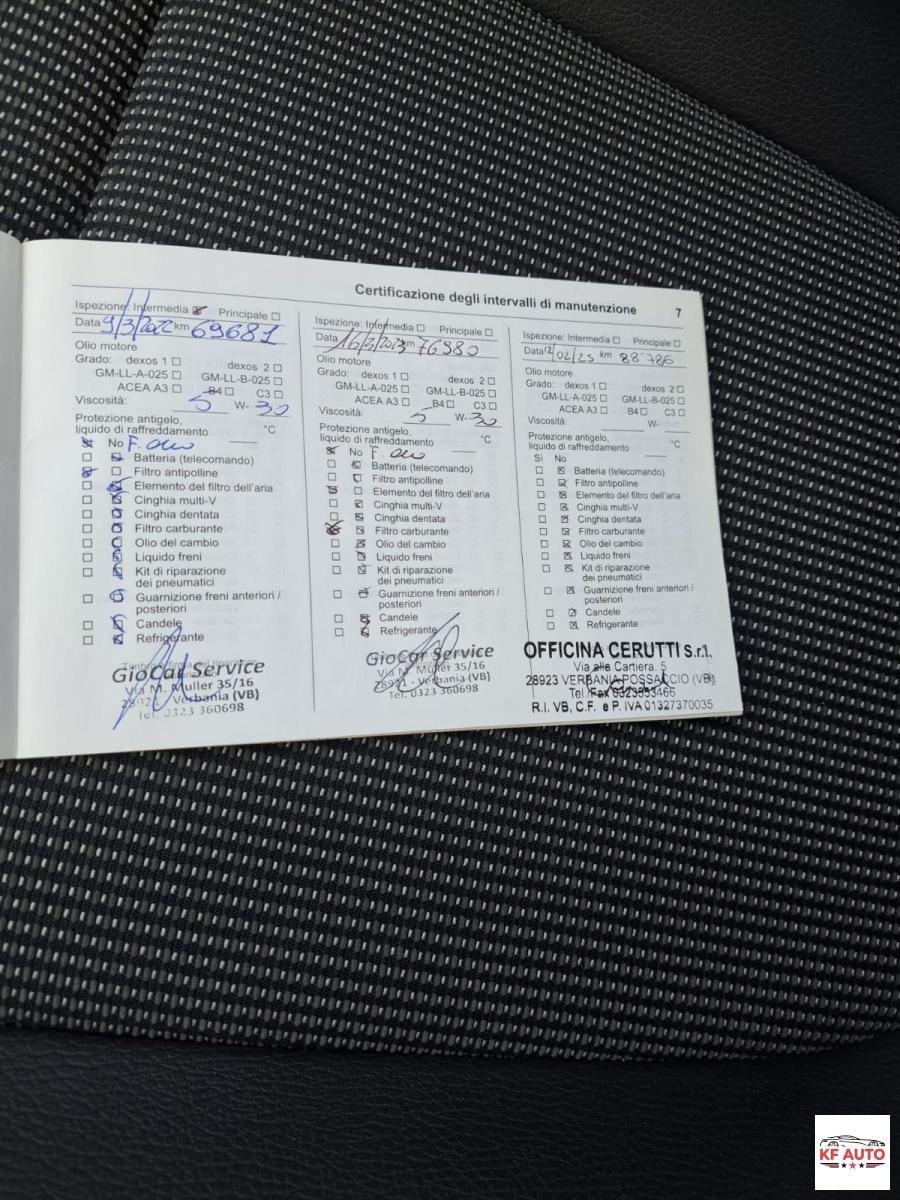 Certificazione degli intervalli di manutenzione 7
Ispezione: Intermedia Principale
Data 9/3/2022 km 69681
Olio motore
Grado: dexos 1 dexos 2
GM-LL-A-025 GM-LL-B-025
ACEA A3 B4 C3
Viscosità: 5 W- 30
Protezione antigelo,
liquido di raffreddamento °C
No F. olio
Batteria (telecomando)
Filtro antipolline
Elemento del filtro dell'aria
Cinghia multi-V
Cinghia dentata
Filtro carburante
Olio del cambio
Liquido freni
Kit di riparazione
dei pneumatici
Guarnizione freni anteriori /
posteriori
Candele
Refrigerante
GioCar Service
Via M. Muller 35/16
28921 - Verbania (VB)
Tel. 0323 360698
Ispezione: Intermedia Principale
Data 16/3/2023 km 76980
Olio motore
Grado: dexos 1 dexos 2
GM-LL-A-025 GM-LL-B-025
ACEA A3 B4 C3
Viscosità: 5 W- 30
Protezione antigelo,
liquido di raffreddamento °C
No F. olio
Batteria (telecomando)
Filtro antipolline
Elemento del filtro dell'aria
Cinghia multi-V
Cinghia dentata
Filtro carburante
Olio del cambio
Liquido freni
Kit di riparazione
dei pneumatici
Guarnizione freni anteriori /
posteriori
Candele
Refrigerante
GioCar Service
Via M. Muller 35/16
28921 - Verbania (VB)
Tel. 0323 360698
Ispezione: Intermedia Principale
Data 12/02/25 km 88'786
Olio motore
Grado: dexos 1 dexos 2
GM-LL-A-025 GM-LL-B-025
ACEA A3 B4 C3
Viscosità: W-
Protezione antigelo,
liquido di raffreddamento °C
Sì No
Batteria (telecomando)
Filtro antipolline
Elemento del filtro dell'aria
Cinghia multi-V
Cinghia dentata
Filtro carburante
Olio del cambio
Liquido freni
Kit di riparazione
dei pneumatici
Guarnizione freni anteriori /
posteriori
Candele
Refrigerante
OFFICINA CERUTTI S.r.l.
Via alle Cartiera, 5
28923 VERBANIA POSSACCIO (VB)
Tel. Fax 0323553466
R.I. VB, C.F. e P. IVA 01327370035
KF AUTO